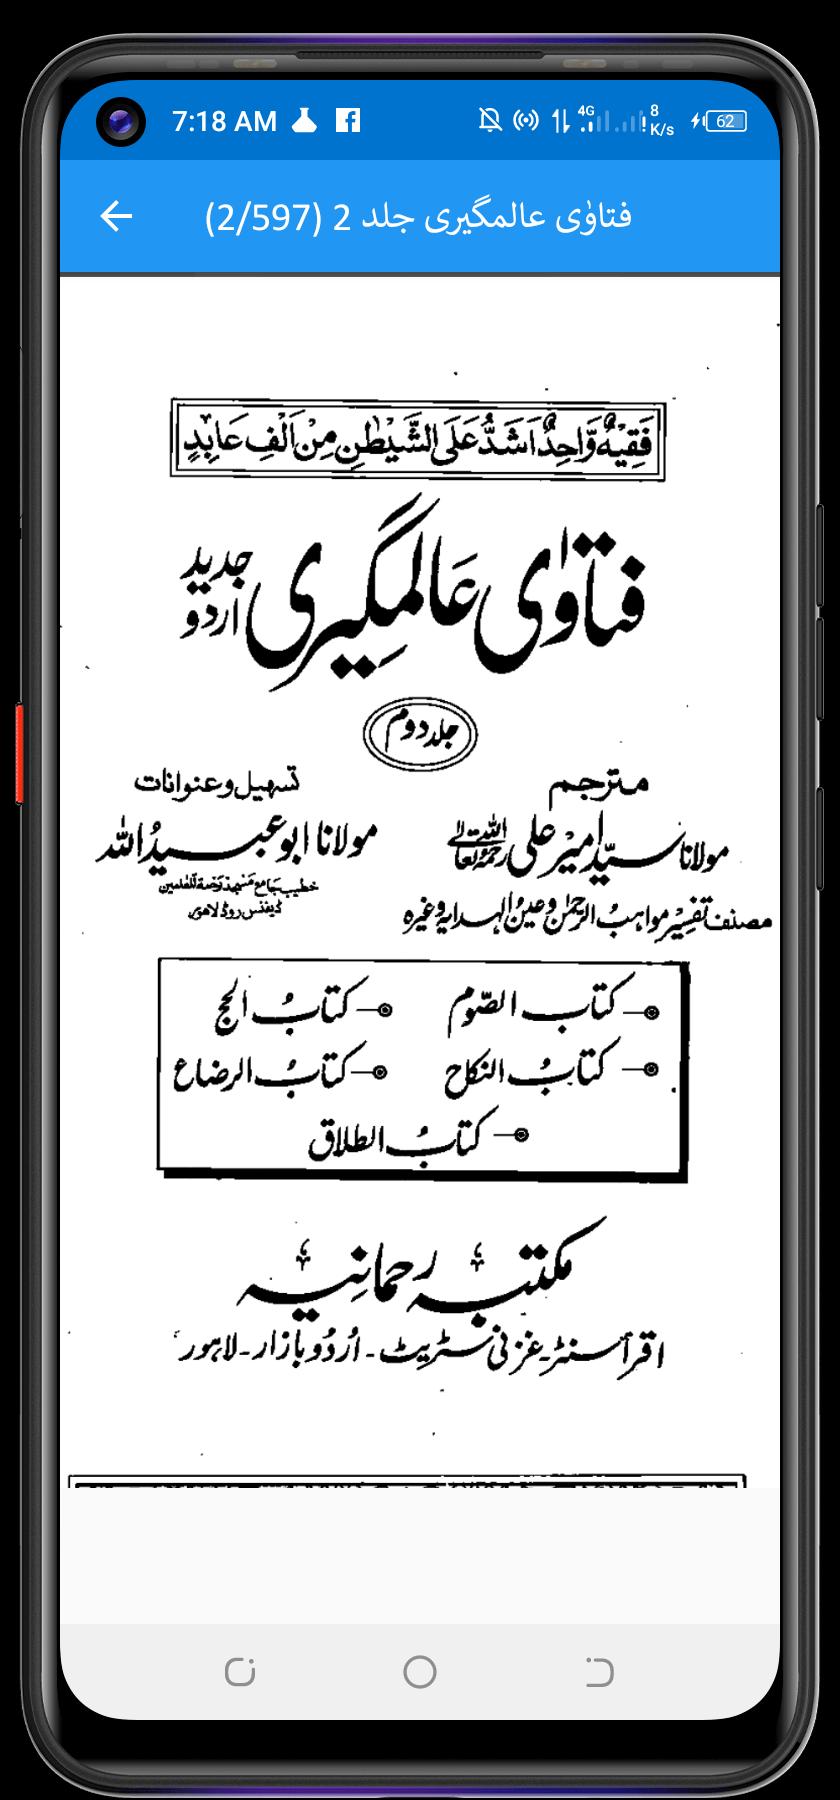 7:18 AM
4G
8 K/s
62
فتاوٰی عالمگیری جلد 2 (2/597)
فَقِیْہٌ وَّاحِدٌ اَشَدُّ عَلَی الشَّیْطٰنِ مِنْ اَلْفِ عَابِدٍ
فتاوٰی عَالمگیری جدید اردو
جلد دوم
مترجم
تسہیل و عنوانات
مولانا سیّد امیر علی رحمۃ اللہ تعالیٰ
مولانا ابو عبیدُ اللہ
خطیب جامع مسجد رحمۃ للعلمین
ڈیفنس روڈ لاہور
مصنف تفسیر مواہبُ الرحمٰن و عینُ الہدایہ وغیرہ
کتاب الصّوم
کتابُ الحج
کتابُ النکاح
کتابُ الرضاع
کتابُ الطلاق
مکتبہ رحمانیہ
اقرأ سنٹر۔ غزنی سٹریٹ۔ اُردُو بازار۔ لاہور